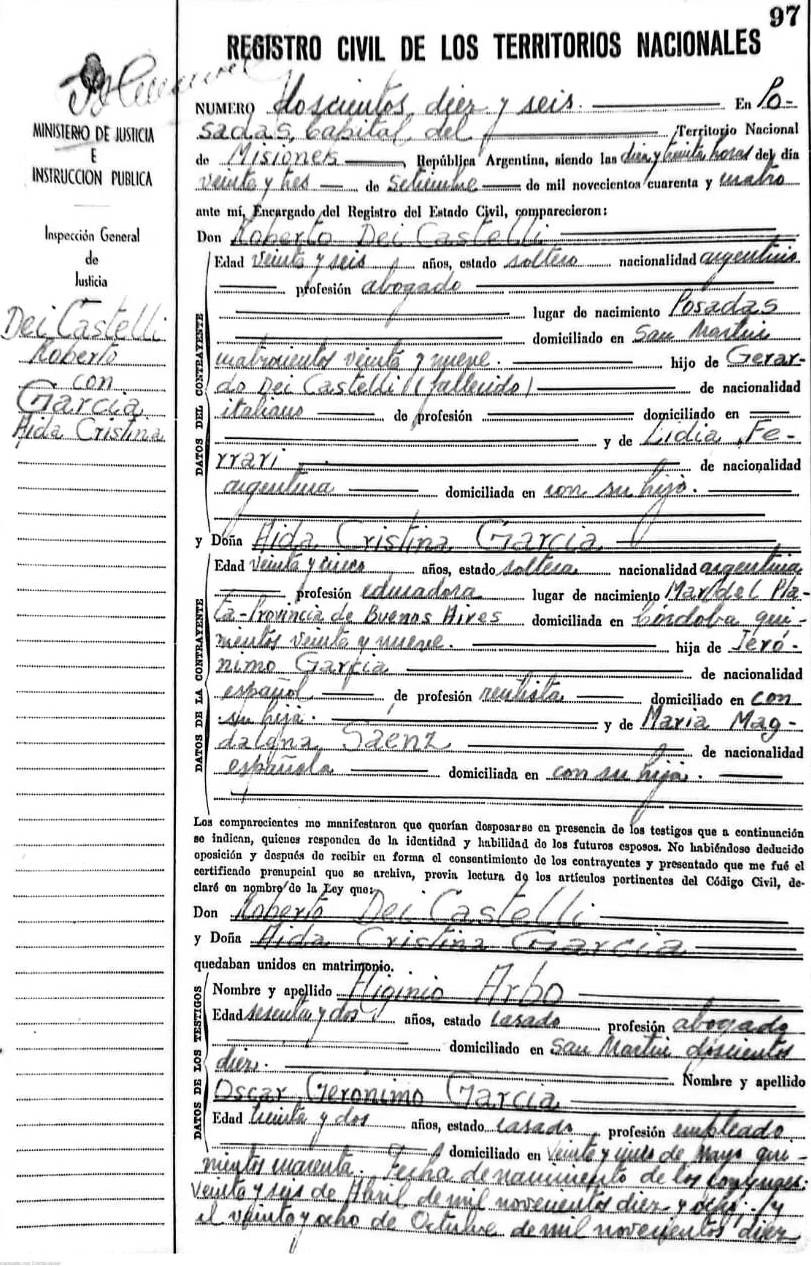 97
REGISTRO CIVIL DE LOS TERRITORIOS NACIONALES
MINISTERIO DE JUSTICIA
E
INSTRUCCION PUBLICA
Inspección General
de
Justicia
Dei Castelli
Roberto
con
Garcia
Aida Cristina
NUMERO doscientos diez y seis. En Po-
sadas, Capital del Territorio Nacional
de Misiones, República Argentina, siendo las diez y treinta horas del día
veinte y tres de Setiembre de mil novecientos cuarenta y cuatro
ante mí, Encargado del Registro del Estado Civil, comparecieron:
Don Roberto Dei Castelli
DATOS DEL CONTRAYENTE
Edad veinte y seis años, estado soltero nacionalidad argentino
profesión abogado
lugar de nacimiento Posadas
domiciliado en San Martin
cuatrocientos veinte y nueve. hijo de Gerar-
do Dei Castelli (fallecido) de nacionalidad
italiano de profesión domiciliado en
y de Lidia Fe-
rrari de nacionalidad
argentina domiciliada en con su hijo.
y Doña Aida Cristina Garcia
DATOS DE LA CONTRAYENTE
Edad veinte y cinco años, estado soltera nacionalidad argentina
profesión educadora lugar de nacimiento Mar del Pla-
ta-Provincia de Buenos Aires domiciliada en Córdoba qui-
nientos veinte y nueve. hija de Jeró-
nimo Garcia de nacionalidad
español de profesión rentista domiciliado en con
su hija. y de Maria Mag-
dalena Saenz de nacionalidad
española domiciliada en con su hija.
Los comparecientes me manifestaron que querían desposarse en presencia de los testigos que a continuación
se indican, quienes responden de la identidad y habilidad de los futuros esposos. No habiéndose deducido
oposición y después de recibir en forma el consentimiento de los contrayentes y presentado que me fué el
certificado prenupcial que se archiva, previa lectura de los artículos pertinentes del Código Civil, de-
claré en nombre de la Ley que:
Don Roberto Dei Castelli
y Doña Aida Cristina Garcia
quedaban unidos en matrimonio.
DATOS DE LOS TESTIGOS
Nombre y apellido Higinio Arbo
Edad sesenta y dos años, estado casado profesión abogado
domiciliado en San Martin doscientos
diez. Nombre y apellido
Oscar Geronimo Garcia
Edad treinta y dos años, estado casado profesión empleado.
domiciliado en Veinte y cinco de Mayo qui-
nientos cuarenta. Fecha de nacimiento de los conyuges:
veinte y seis de Abril de mil novecientos diez y ocho y
el veinte y ocho de Octubre de mil novecientos diez